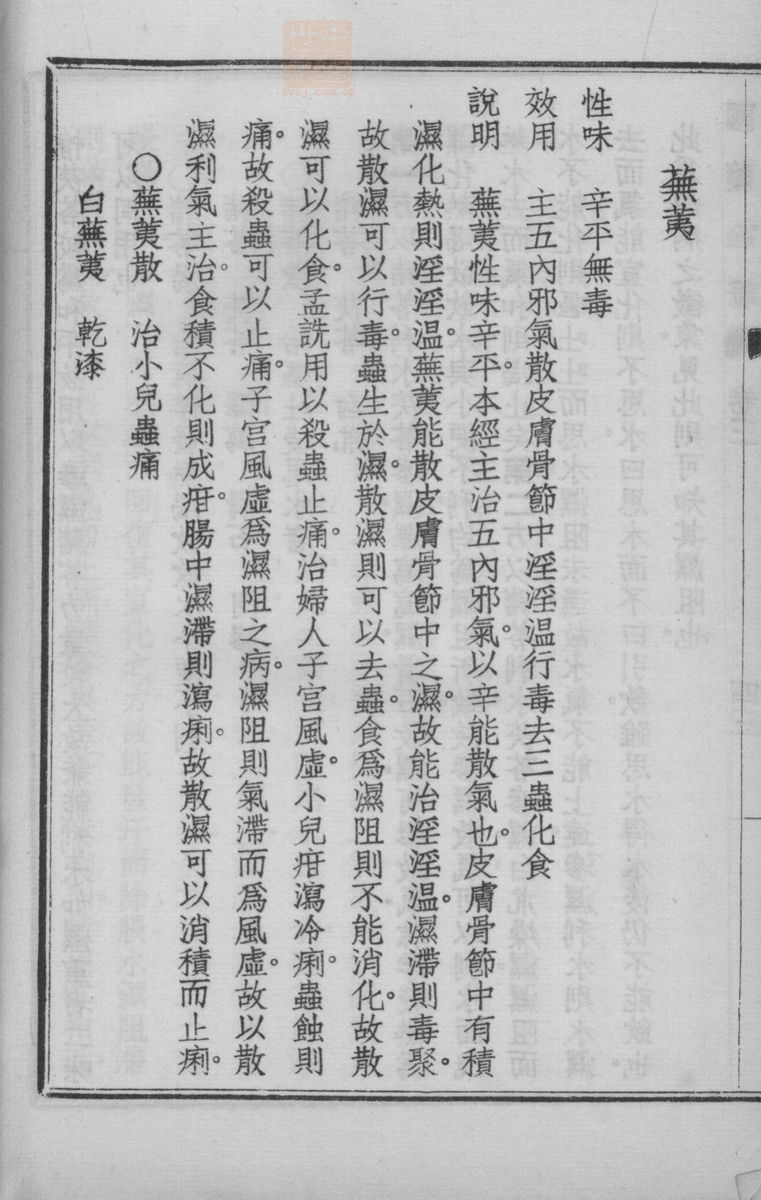 蕪荑
性味　辛平無毒
效用　主五內邪氣散皮膚骨節中淫淫温行毒去三蟲化食
說明　蕪荑性味辛平。本經主治五內邪氣。以辛能散氣也。皮膚骨節中有積
濕化熱則淫淫温。蕪荑能散皮膚骨節中之濕。故能治淫淫温。濕滯則毒聚。
故散濕可以行毒。蟲生於濕。散濕則可以去蟲。食爲濕阻則不能消化。故散
濕可以化食。孟詵用以殺蟲止痛。治婦人子宮風虛。小兒疳瀉冷痢。蟲蝕則
痛。故殺蟲可以止痛。子宮風虛爲濕阻之病。濕阻則氣滯而爲風虛。故以散
濕利氣主治。食積不化則成疳。腸中濕滯則瀉痢。故散濕可以消積而止痢。
〇蕪荑散　治小兒蟲痛
白蕪荑　乾漆